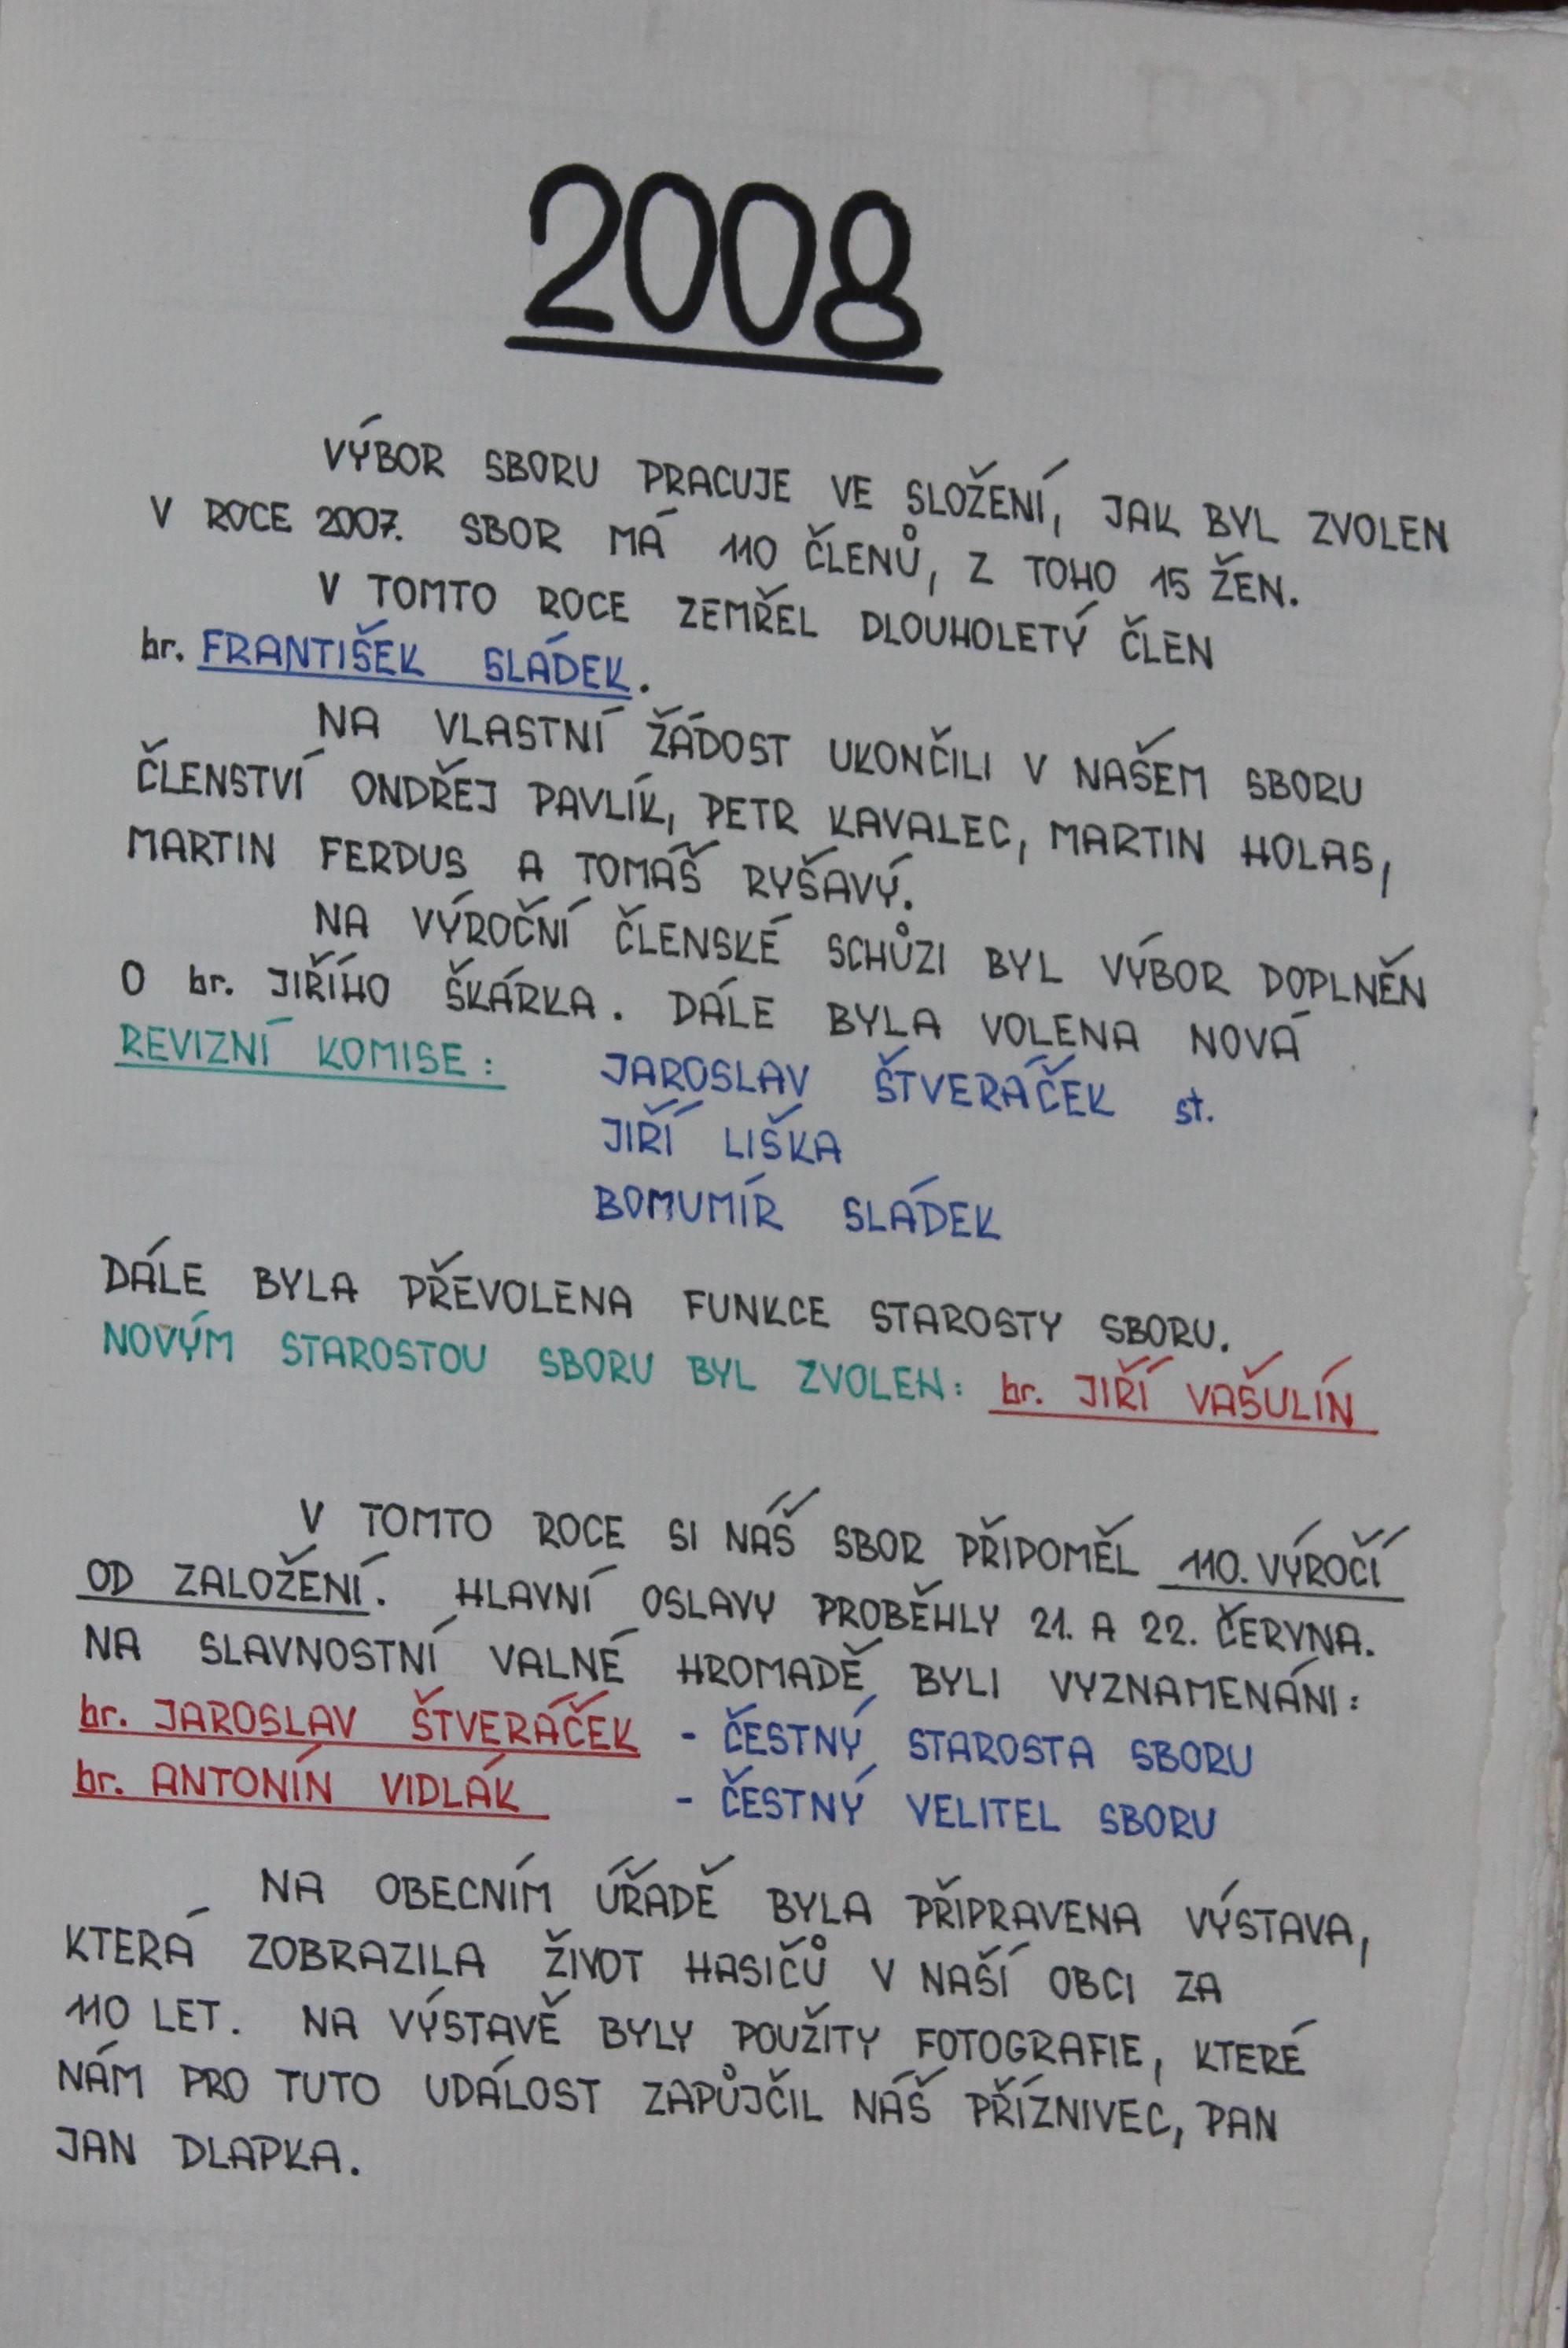 2008
VÝBOR SBORU PRACUJE VE SLOŽENÍ, JAK BYL ZVOLEN
V ROCE 2007. SBOR MÁ 110 ČLENŮ, Z TOHO 15 ŽEN.
V TOMTO ROCE ZEMŘEL DLOUHOLETÝ ČLEN
br. FRANTIŠEK SLÁDEK.
NA VLASTNÍ ŽÁDOST UKONČILI V NAŠEM SBORU
ČLENSTVÍ ONDŘEJ PAVLÍK, PETR KAVALEC, MARTIN HOLAS,
MARTIN FERDUS A TOMÁŠ RYŠAVÝ.
NA VÝROČNÍ ČLENSKÉ SCHŮZI BYL VÝBOR DOPLNĚN
O br. JIŘÍHO ŠKÁRKA. DÁLE BYLA VOLENA NOVÁ
REVIZNÍ KOMISE: JAROSLAV ŠTVERÁČEK st.
JIŘÍ LIŠKA
BOMUMÍR SLÁDEK
DÁLE BYLA PŘEVOLENA FUNKCE STAROSTY SBORU.
NOVÝM STAROSTOU SBORU BYL ZVOLEN: br. JIŘÍ VAŠULÍN
V TOMTO ROCE SI NÁŠ SBOR PŘIPOMĚL 110. VÝROČÍ
OD ZALOŽENÍ. HLAVNÍ OSLAVY PROBĚHLY 21. A 22. ČERVNA.
NA SLAVNOSTNÍ VALNÉ HROMADĚ BYLI VYZNAMENÁNI:
br. JAROSLAV ŠTVERÁČEK - ČESTNÝ STAROSTA SBORU
br. ANTONÍN VIDLÁK - ČESTNÝ VELITEL SBORU
NA OBECNÍM ÚŘADĚ BYLA PŘIPRAVENA VÝSTAVA,
KTERÁ ZOBRAZILA ŽIVOT HASIČŮ V NAŠÍ OBCI ZA
110 LET. NA VÝSTAVĚ BYLY POUŽITY FOTOGRAFIE, KTERÉ
NÁM PRO TUTO UDÁLOST ZAPŮJČIL NÁŠ PŘÍZNIVEC, PAN
JAN DLAPKA.